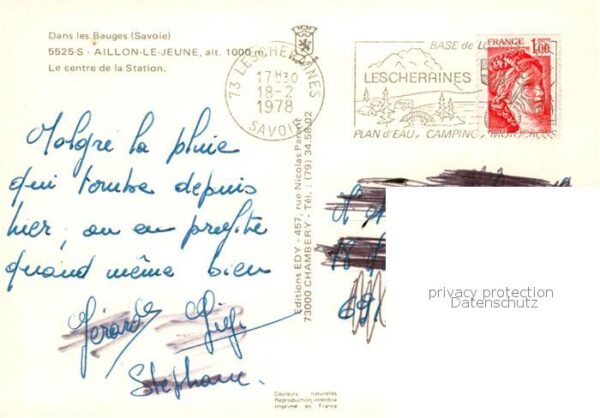 Dans les Bauges (Savoie)
5525-S - AILLON-LE-JEUNE, alt. 1000 m.
Le centre de la Station.
73 LESCHERAINES
17H30
18-2
1978
SAVOIE
BASE de
LESCHERAINES
PLAN d'EAU, CAMPING,
FRANCE
1,00
Malgré la pluie
qui tombe depuis
hier, on en profite
quand même bien
Gérard Gigi
Stéphane.
Editions EDY - 457, rue Nicolas Parent
73000 CHAMBERY - Tél. : (79) 34.58.02
69
privacy protection
Datenschutz
Couleurs naturelles
Reproduction interdite
Imprimé en France